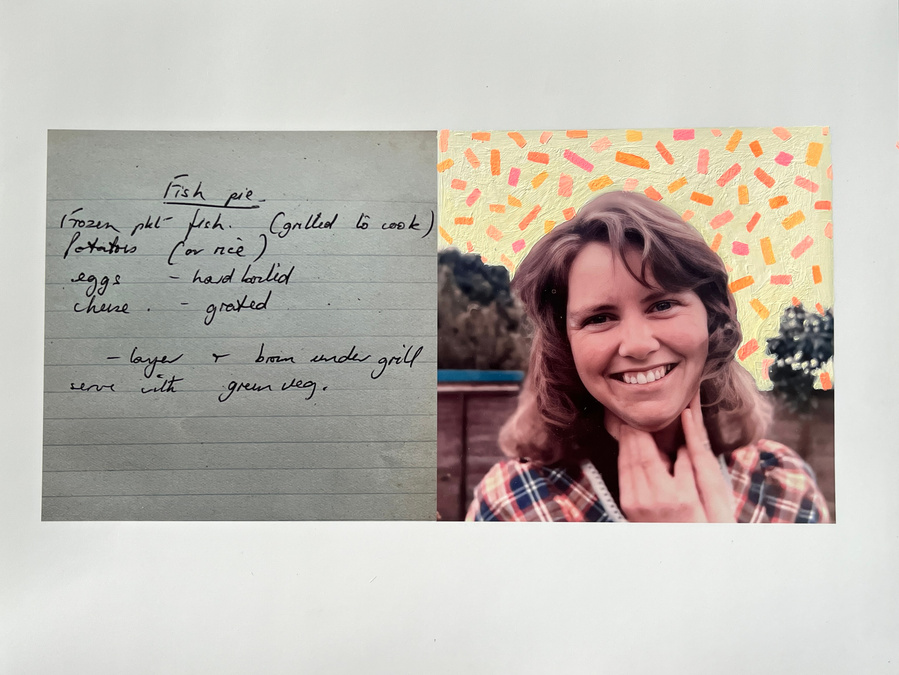 Fish pie
Frozen pkt fish. (grilled to cook)
Potatoes (or rice)
eggs - hard boiled
cheese. - grated
- layer + brown under grill
serve with green veg.